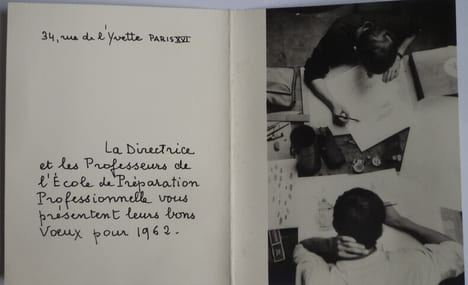 34, rue de l'Yvette PARIS XVI
La Directrice
et les Professeurs de
l'École de Préparation
Professionnelle vous
présentent leurs bons
Vœux pour 1962.